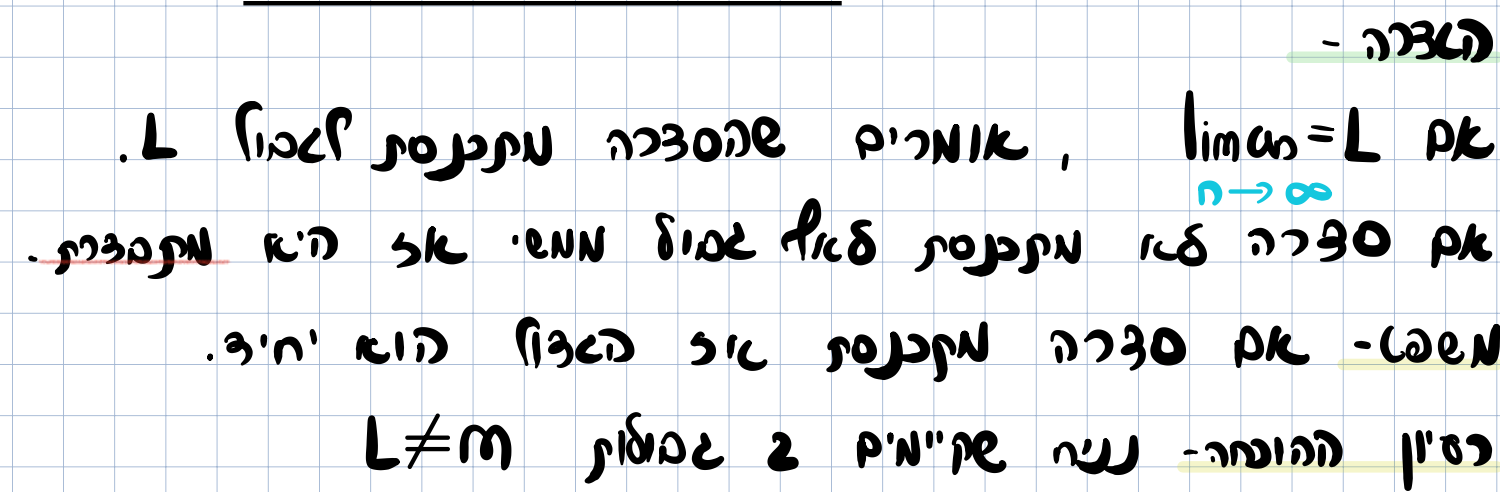 הגדרה -
אם lim an = L , אומרים שהסדרה מתכנסת לגבול L.
n→∞
אם סדרה לא מתכנסת לאף גבול ממשי אז היא מתבדרת.
משפט- אם סדרה מתכנסת אז הגדול הוא יחיד.
רעיון ההוכחה- נניח שקיימים 2 גבולות L≠m